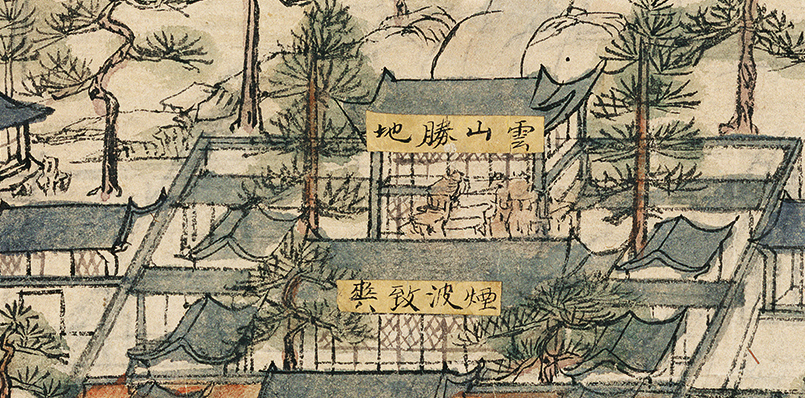 雲山勝地
煙波致爽